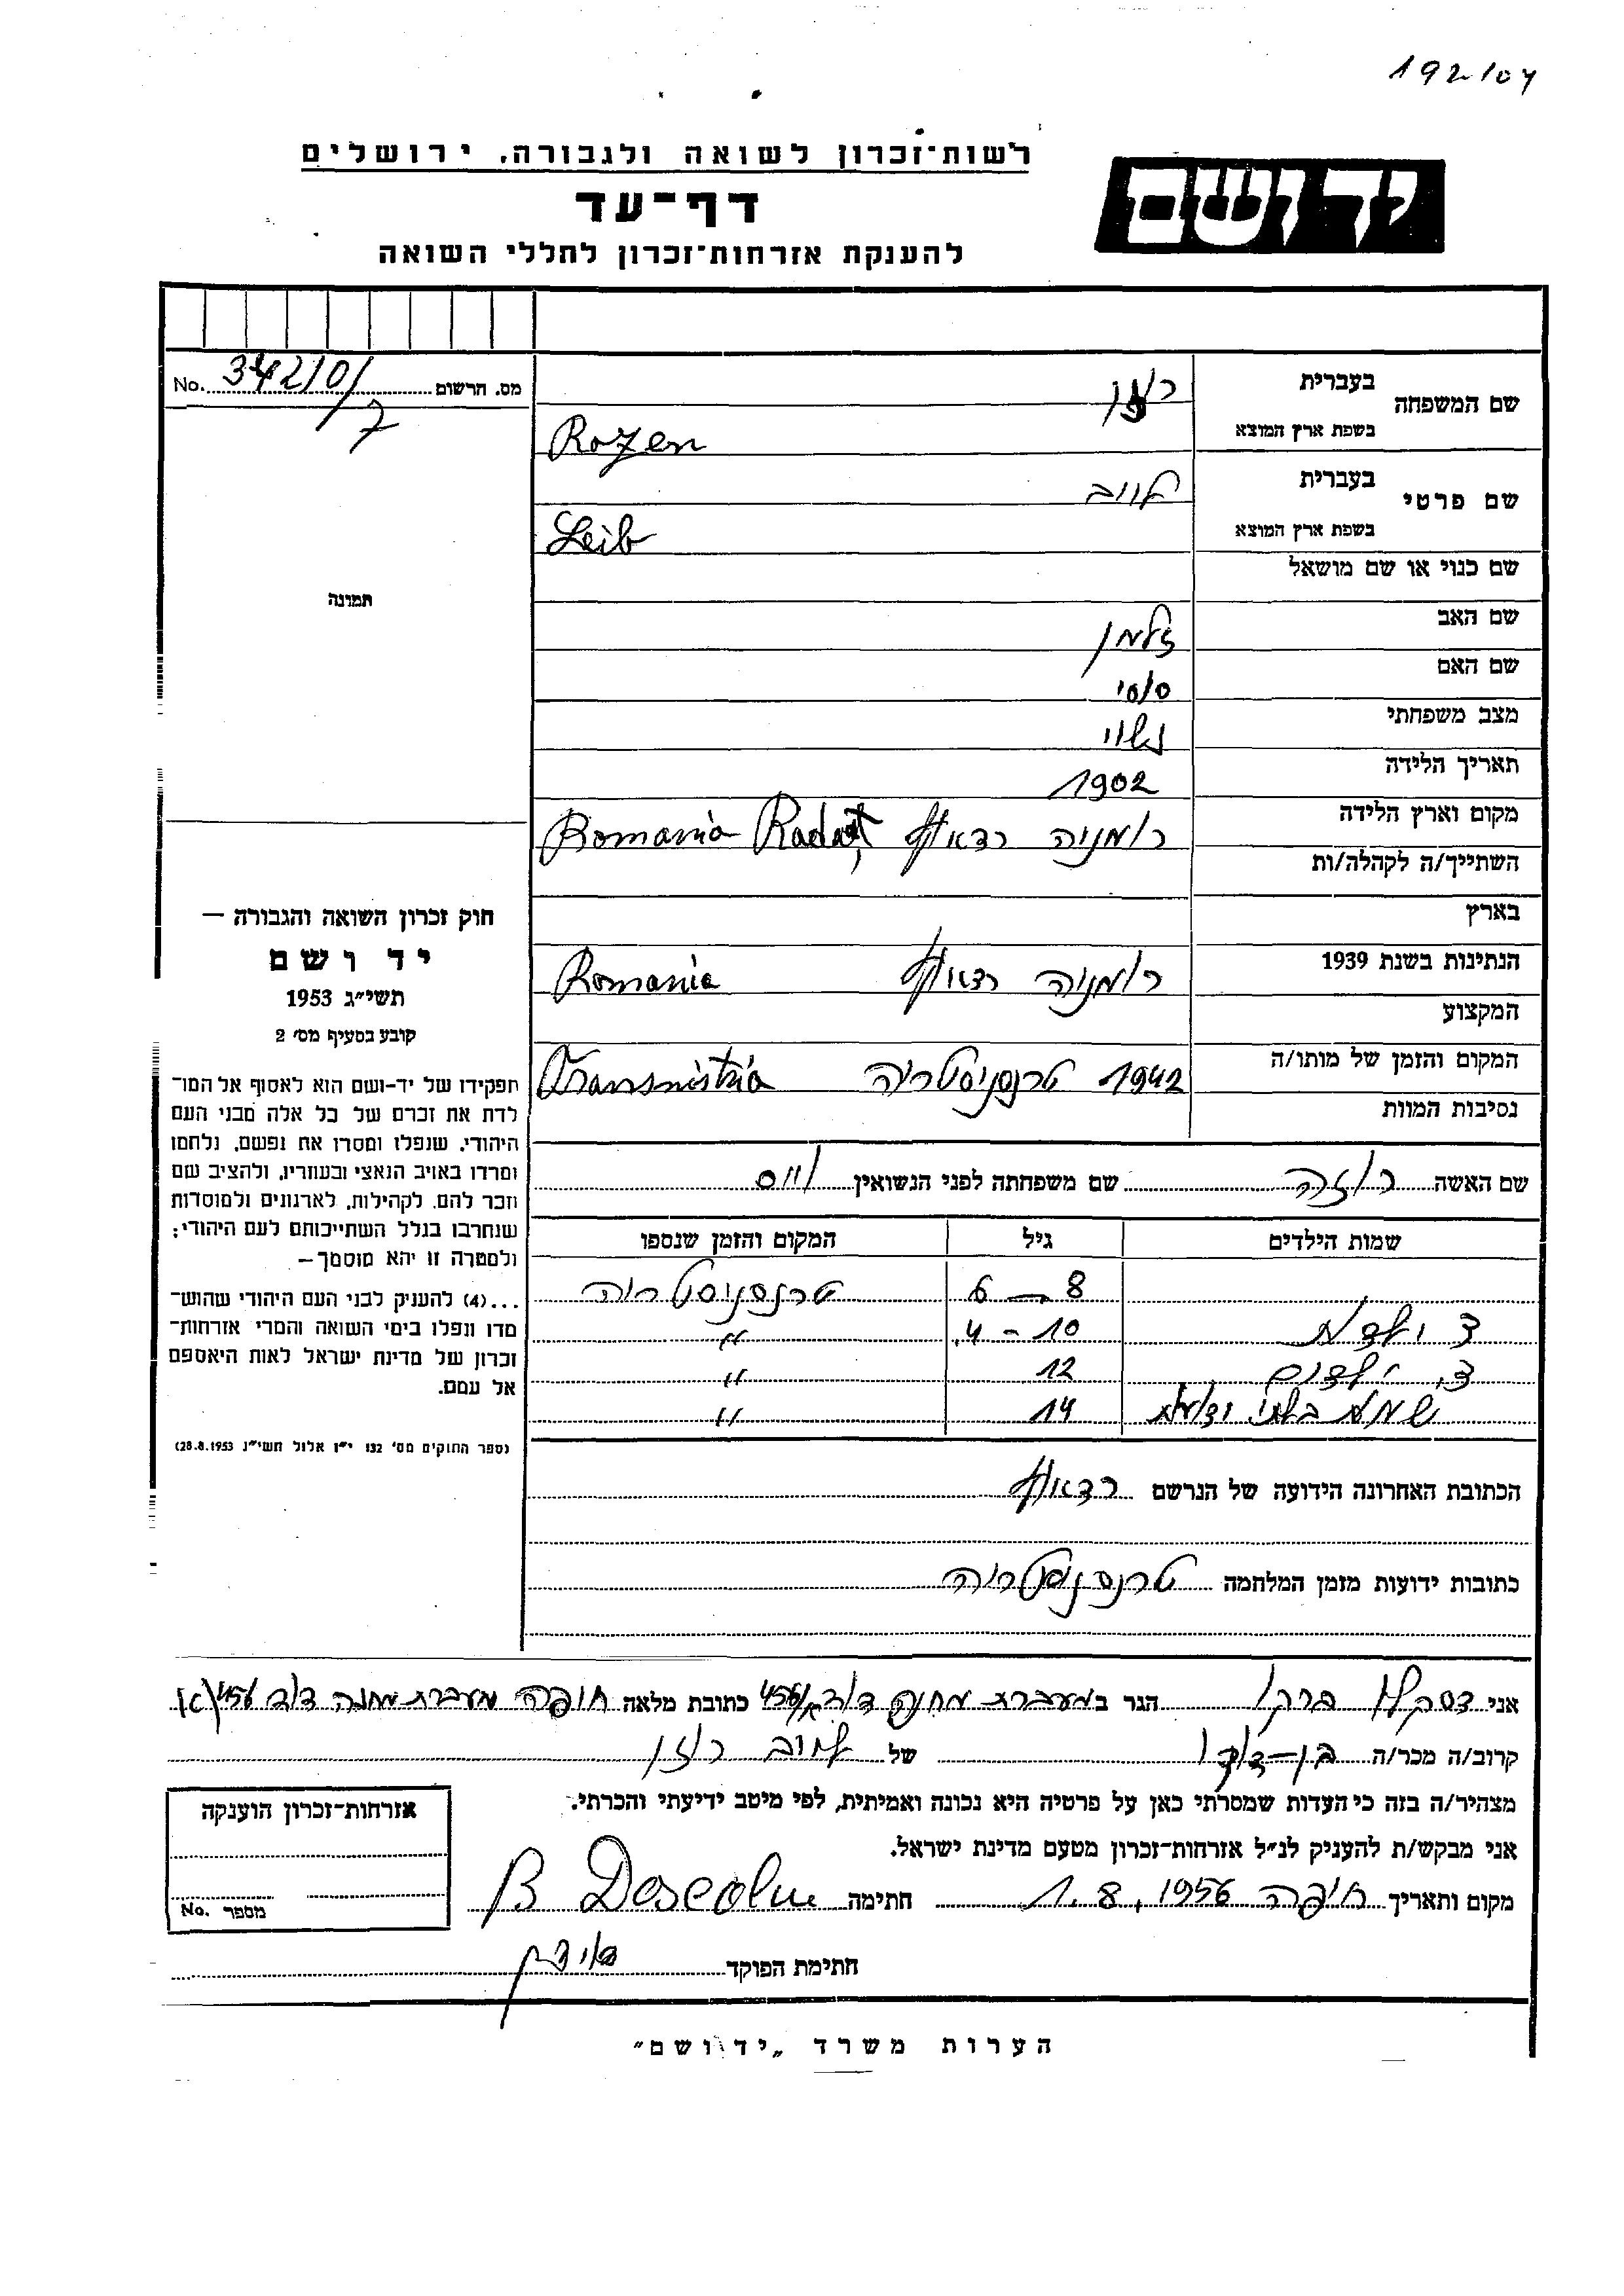 192/07
רשות־זכרון לשואה ולגבורה, ירושלים
יד ושם
דף־עד
להענקת אזרחות־זכרון לחללי השואה
מס. הרשום 342/0/7 No.
שם המשפחה בעברית רוזן
בשפת ארץ המוצא Rozen
שם פרטי בעברית לייב
בשפת ארץ המוצא Leib
שם כנוי או שם מושאל
שם האב זלמן
שם האם
מצב משפחתי נשוי
תאריך הלידה 1902
מקום וארץ הלידה רומניה רדאוץ Romania Radauț
השתייך/ה לקהלה/ות
בארץ
הנתינות בשנת 1939 רומניה רדאוץ Romania
המקצוע
המקום והזמן של מותו/ה 1942 טרנסניסטריה Transnistria
נסיבות המוות
שם האשה רוזה שם משפחתה לפני הנשואין
שמות הילדים גיל המקום והזמן שנספו
8 — 6 טרנסניסטריה
10 - 4. "
12 "
14 "
הכתובת האחרונה הידועה של הנרשם רדאוץ
כתובות ידועות מזמן המלחמה טרנסניסטריה
תמונה
חוק זכרון השואה והגבורה —
יד ושם
תשי״ג 1953
קובע בסעיף מס׳ 2
תפקידו של יד-ושם הוא לאסוף אל המו־
לדת את זכרם של כל אלה מבני העם
היהודי, שנפלו ומסרו את נפשם, נלחמו
ומרדו באויב הנאצי ובעוזריו, ולהציב שם
וזכר להם, לקהילות, לארגונים ולמוסדות
שנחרבו בגלל השתייכותם לעם היהודי;
ולמטרה זו יהא מוסמך—
...(4) להעניק לבני העם היהודי שהוש־
מדו ונפלו בימי השואה והמרי אזרחות־
זכרון של מדינת ישראל לאות היאספם
אל עמם.
(ספר החוקים מס׳ 132 י״ז אלול תשי״ג 28.8.1953)
אני דסקלו ברקו הגר ב מעברת מחנה דוד 456/א כתובת מלאה חיפה מעברת מחנה דוד 456(א)
קרוב/ה מכר/ה בן־דוד של לייב רוזן
מצהיר/ה בזה כי העדות שמסרתי כאן על פרטיה היא נכונה ואמיתית, לפי מיטב ידיעתי והכרתי.
אני מבקש/ת להעניק לנ״ל אזרחות־זכרון מטעם מדינת ישראל.
מקום ותאריך חיפה 1.8.1956 חתימה B Descalu
חתימת הפוקד
אזרחות־זכרון הוענקה
מספר No.
הערות משרד „יד ושם"